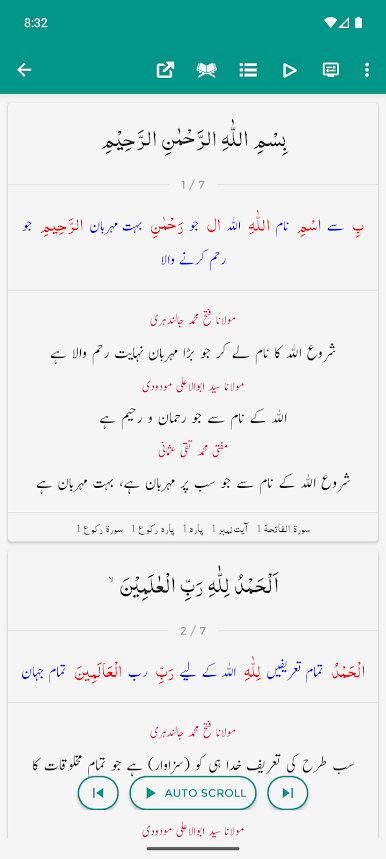 8:32
بِسْمِ اللّٰهِ الرَّحْمٰنِ الرَّحِيْمِ
1 / 7
بِ سے اسْمِ نام اللّٰهِ اللہ ال جو رَحْمٰنِ بہت مہربان الرَّحِيمِ جو
رحم کرنے والا
مولانا فتح محمد جالندہری
شروع اللہ کا نام لے کر جو بڑا مہربان نہایت رحم والا ہے
مولانا سید ابوالاعلی مودودی
اللہ کے نام سے جو رحمان و رحیم ہے
مفتی محمد تقی عثمانی
شروع اللہ کے نام سے جو سب پر مہربان ہے، بہت مہربان ہے
سورة الفاتحة 1 آیت نمبر 1 پارہ 1 پارہ رکوع 1 سورة رکوع 1
اَلْحَمْدُ لِلّٰهِ رَبِّ الْعٰلَمِيْنَ ۙ
2 / 7
الْحَمْدُ تمام تعریفیں لِلّٰهِ اللہ کے لیے رَبِّ رب الْعَالَمِينَ تمام جہان
مولانا فتح محمد جالندہری
سب طرح کی تعریف خدا ہی کو (سزاوار) ہے جو تمام مخلوقات کا
AUTO SCROLL
مولانا سید ابوالاعلی مودودی